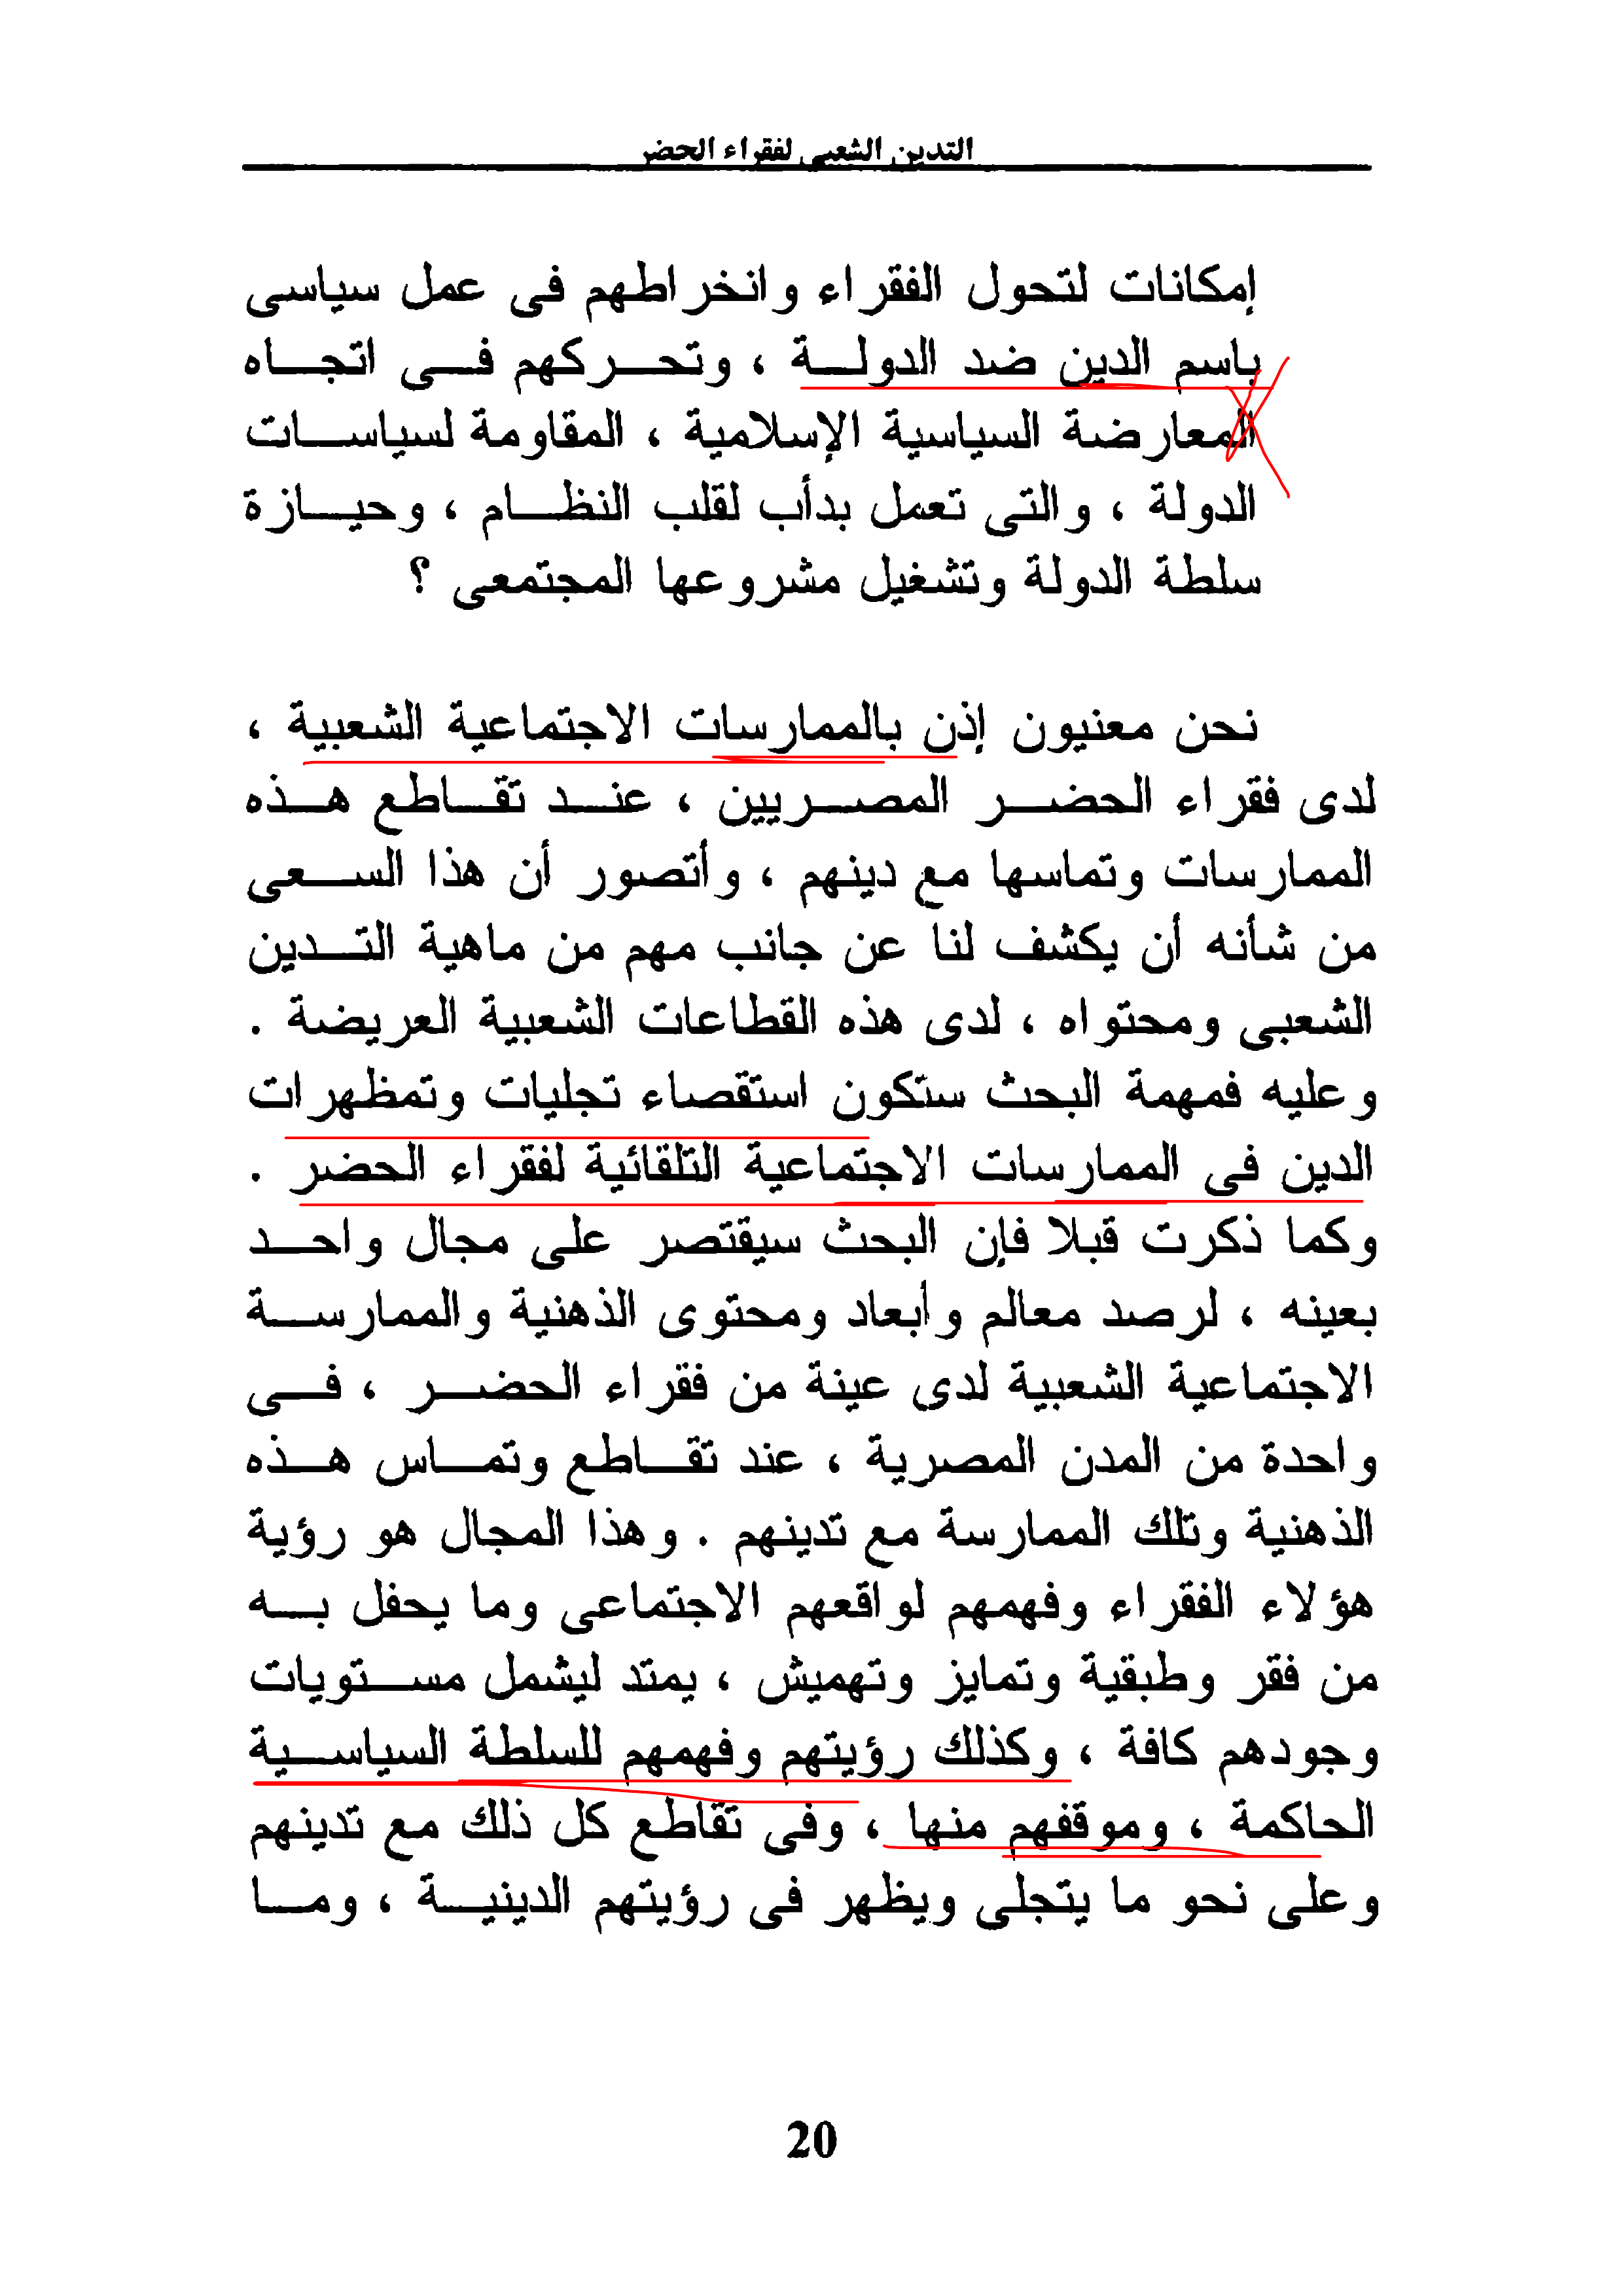 التدين الشعبى لفقراء الحضر
إمكانات لتحول الفقراء وانخراطهم فى عمل سياسى
باسم الدين ضد الدولة ، وتحركهم فى اتجاه
المعارضة السياسية الإسلامية ، المقاومة لسياسات
الدولة ، والتى تعمل بدأب لقلب النظام ، وحيازة
سلطة الدولة وتشغيل مشروعها المجتمعى ؟
نحن معنيون إذن بالممارسات الاجتماعية الشعبية ،
لدى فقراء الحضر المصريين ، عند تقاطع هذه
الممارسات وتماسها مع دينهم ، وأتصور أن هذا السعى
من شأنه أن يكشف لنا عن جانب مهم من ماهية التدين
الشعبى ومحتواه ، لدى هذه القطاعات الشعبية العريضة .
وعليه فمهمة البحث ستكون استقصاء تجليات وتمظهرات
الدين فى الممارسات الاجتماعية التلقائية لفقراء الحضر .
وكما ذكرت قبلا فإن البحث سيقتصر على مجال واحد
بعينه ، لرصد معالم وأبعاد ومحتوى الذهنية والممارسة
الاجتماعية الشعبية لدى عينة من فقراء الحضر ، فى
واحدة من المدن المصرية ، عند تقاطع وتماس هذه
الذهنية وتلك الممارسة مع تدينهم . وهذا المجال هو رؤية
هؤلاء الفقراء وفهمهم لواقعهم الاجتماعى وما يحفل به
من فقر وطبقية وتمايز وتهميش ، يمتد ليشمل مستويات
وجودهم كافة ، وكذلك رؤيتهم وفهمهم للسلطة السياسية
الحاكمة ، وموقفهم منها ، وفى تقاطع كل ذلك مع تدينهم
وعلى نحو ما يتجلى ويظهر فى رؤيتهم الدينية ، وما
20